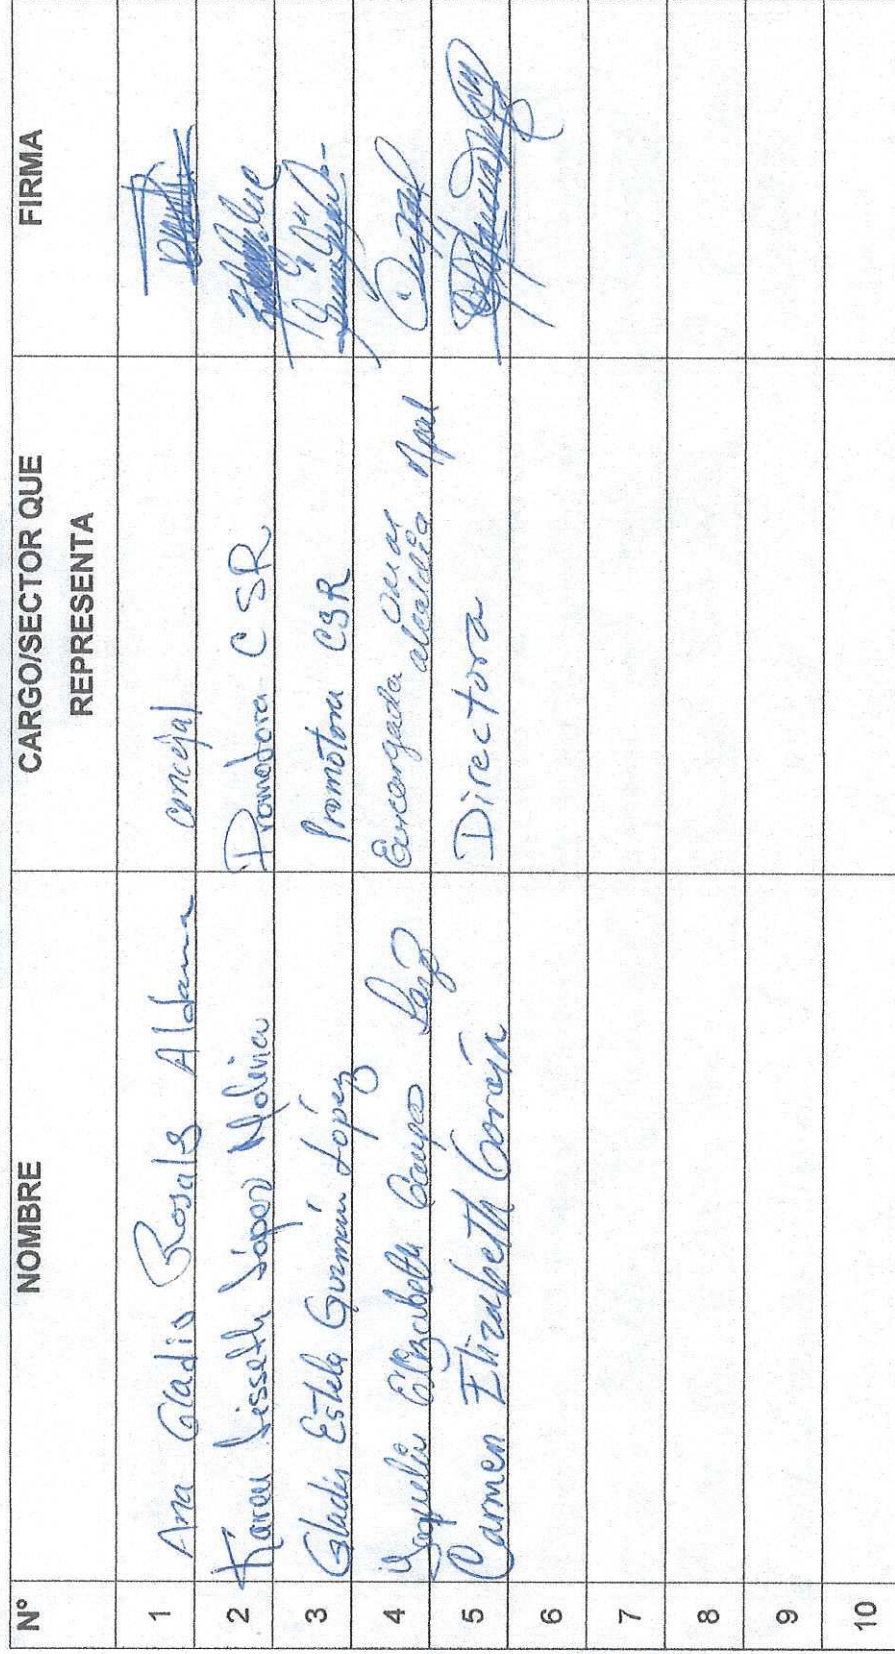 Nº NOMBRE CARGO/SECTOR QUE REPRESENTA FIRMA
1 Ana Gladis Rosales Aldana concejal
2 Karen Lisseth López Molina Promotora CSR
3 Gladis Estela Guzmán López Promotora CSR
4 Elizabeth Campos Encargada alcaldía
5 Carmen Elizabeth Directora
6
7
8
9
10